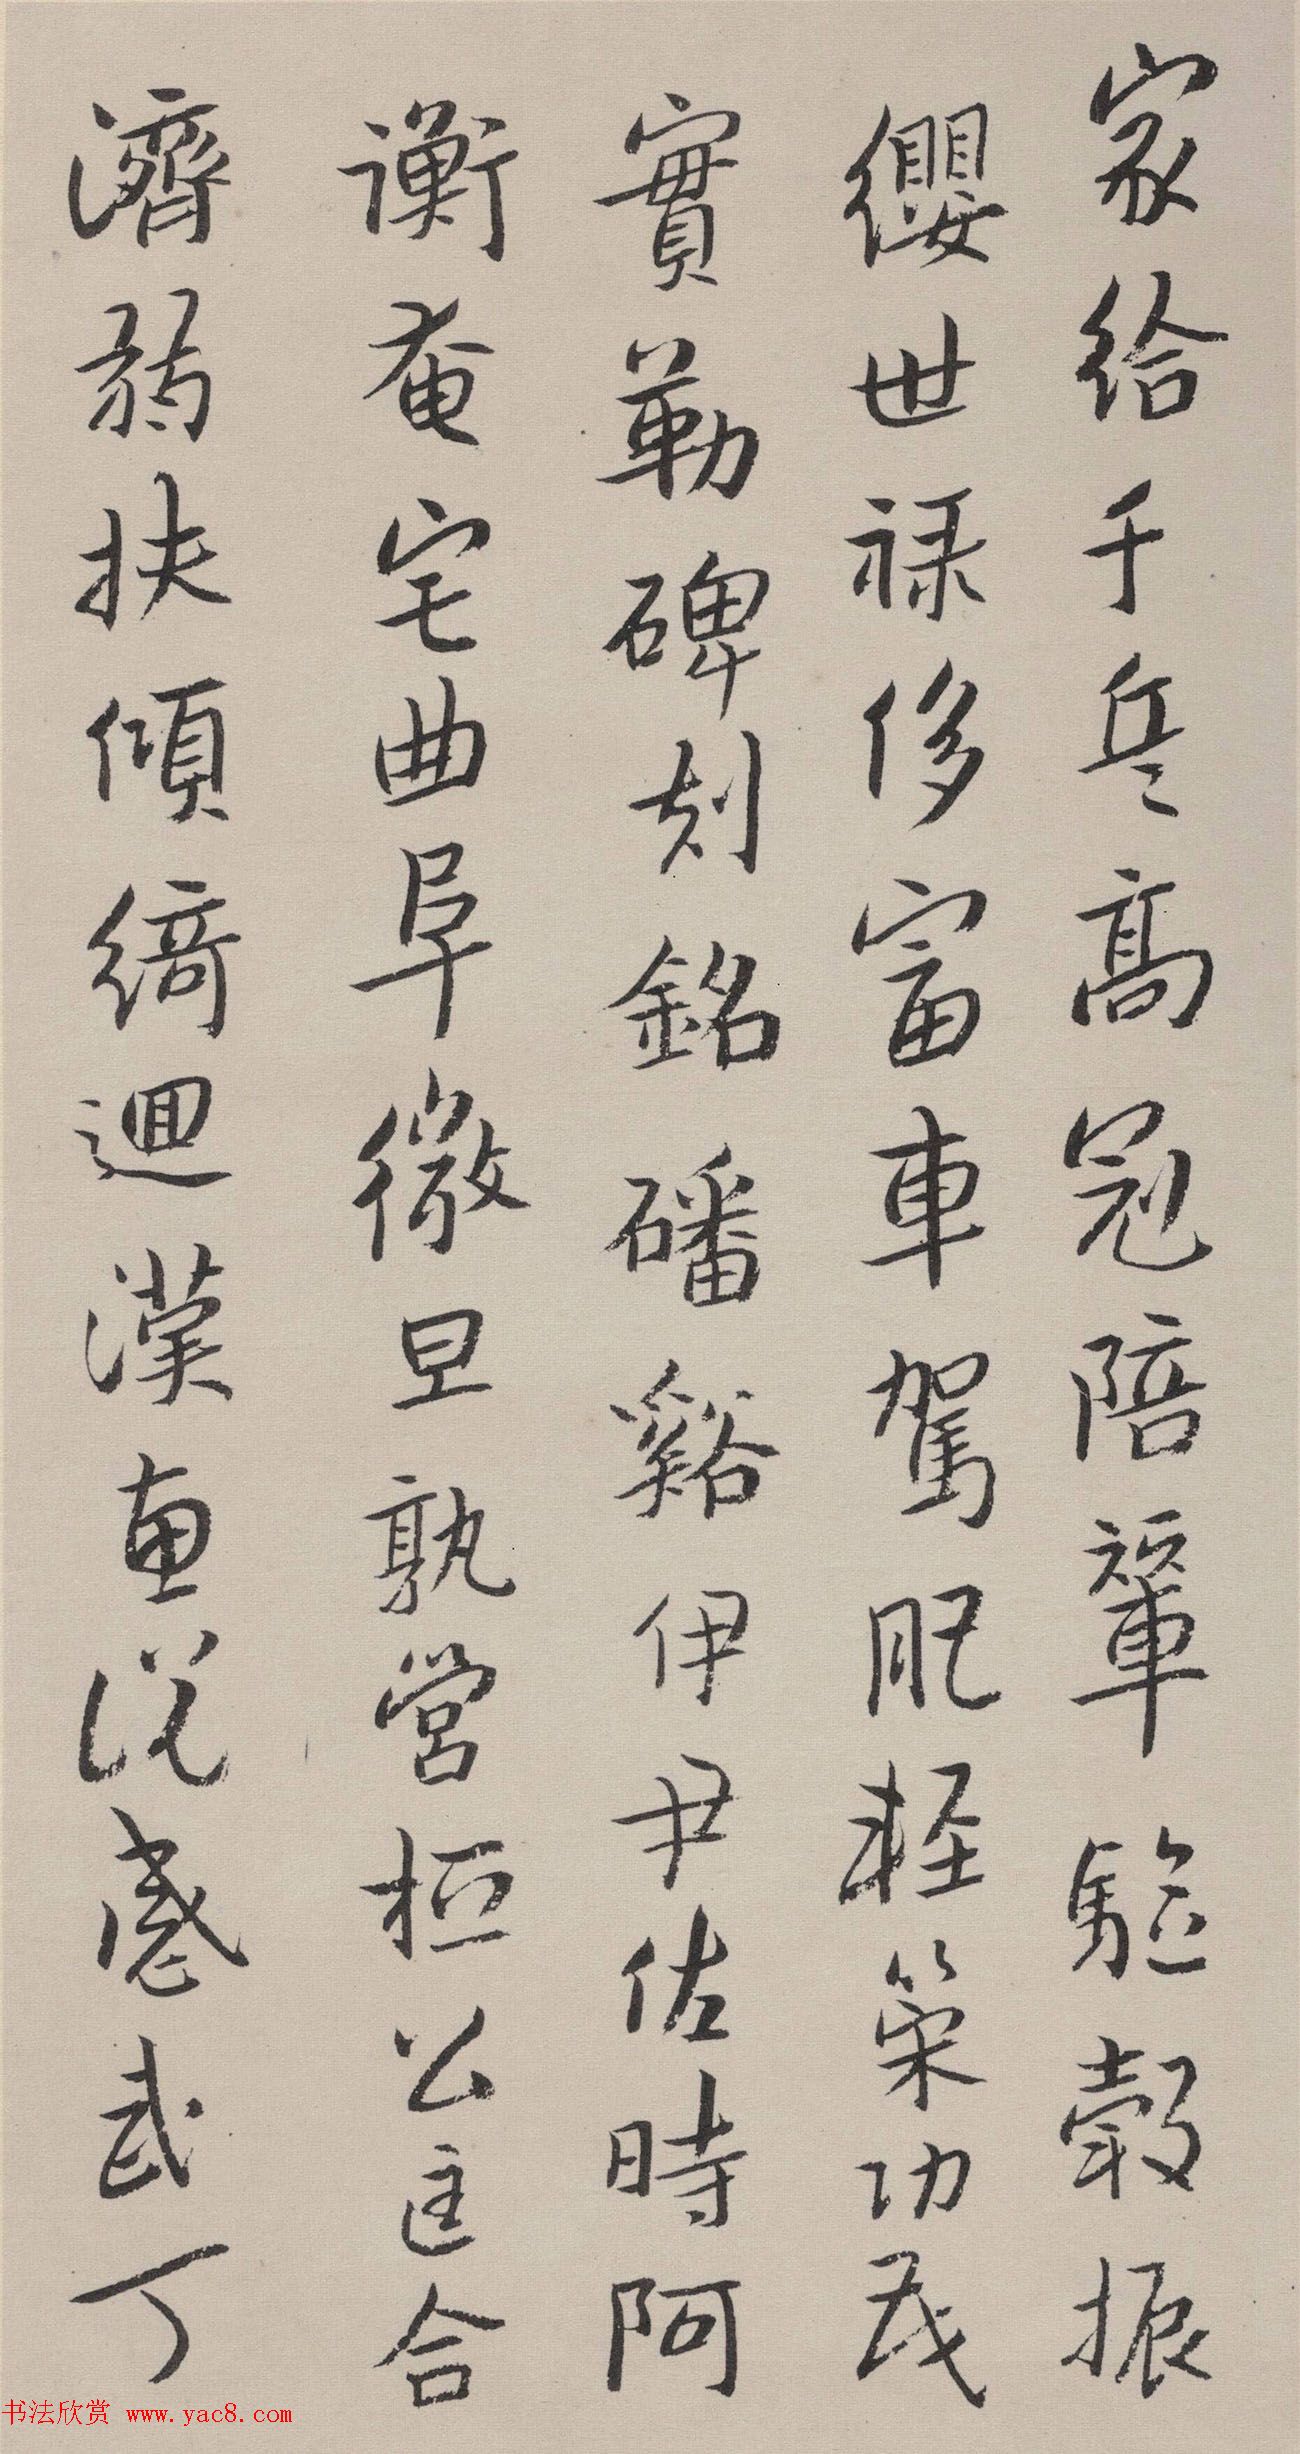 家給千兵高冠陪輦驅轂振
纓世禄侈富車駕肥輕策功茂
實勒碑刻銘磻谿伊尹佐時阿
衡奄宅曲阜微旦孰營桓公匡合
濟弱扶傾綺迴漢惠說感武丁
书法欣赏 www.yac8.com